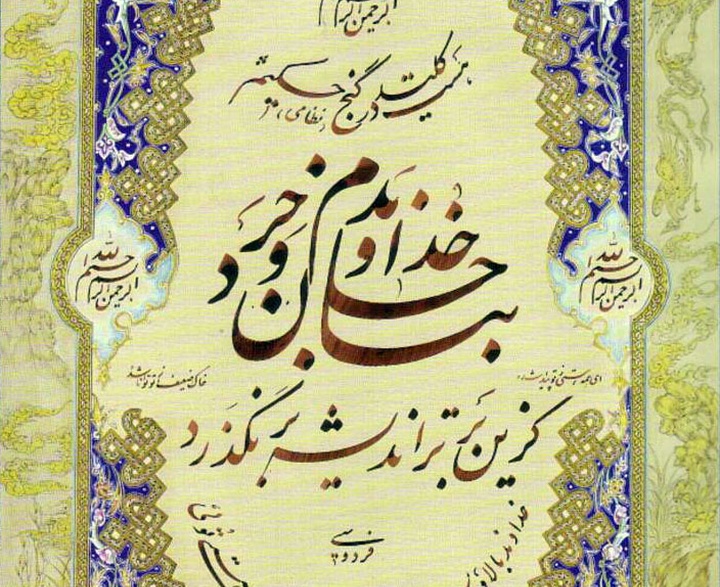 الرحمن الرحیم
هست کلید در گنج حکیم
(نظامی)
بنام خداوند جان و خرد
بسم الله الرحمن الرحیم
بسم الله الرحمن الرحیم
ای همه هستی ز تو پیدا شده
خاک ضعیف از تو توانا شده
کزین برتر اندیشه برنگذرد
فردوسی
خداوند بالا و